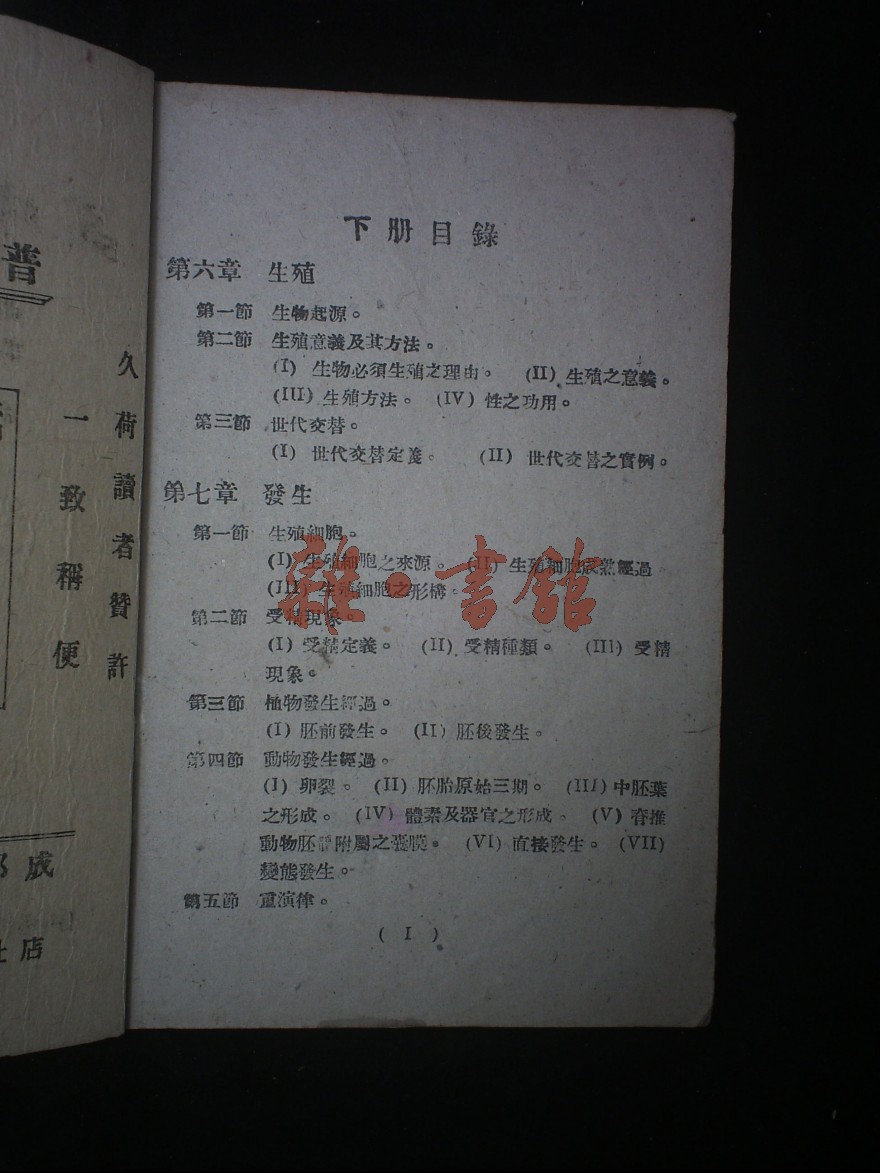 下册目錄
第六章 生殖
第一節 生物起源。
第二節 生殖意義及其方法。
(I) 生物必須生殖之理由。 (II) 生殖之意義。
(III) 生殖方法。 (IV) 性之功用。
第三節 世代交替。
(I) 世代交替定義。 (II) 世代交替之實例。
第七章 發生
第一節 生殖細胞。
(I) 生殖細胞之來源。 (II) 生殖細胞成熟經過
(III) 生殖細胞之形構。
第二節 受精現象。
(I) 受精定義。 (II) 受精種類。 (III) 受精
現象。
第三節 植物發生經過。
(I) 胚前發生。 (II) 胚後發生。
第四節 動物發生經過。
(I) 卵裂。 (II) 胚胎原始三期。 (III) 中胚葉
之形成。 (IV) 體素及器官之形成。 (V) 脊推
動物胚 附屬之囊膜。 (VI) 直接發生。 (VII)
變態發生。
第五節 重演律。
( I )
雜·書館
普
久荷讀者贊許
一致稱便
成
店